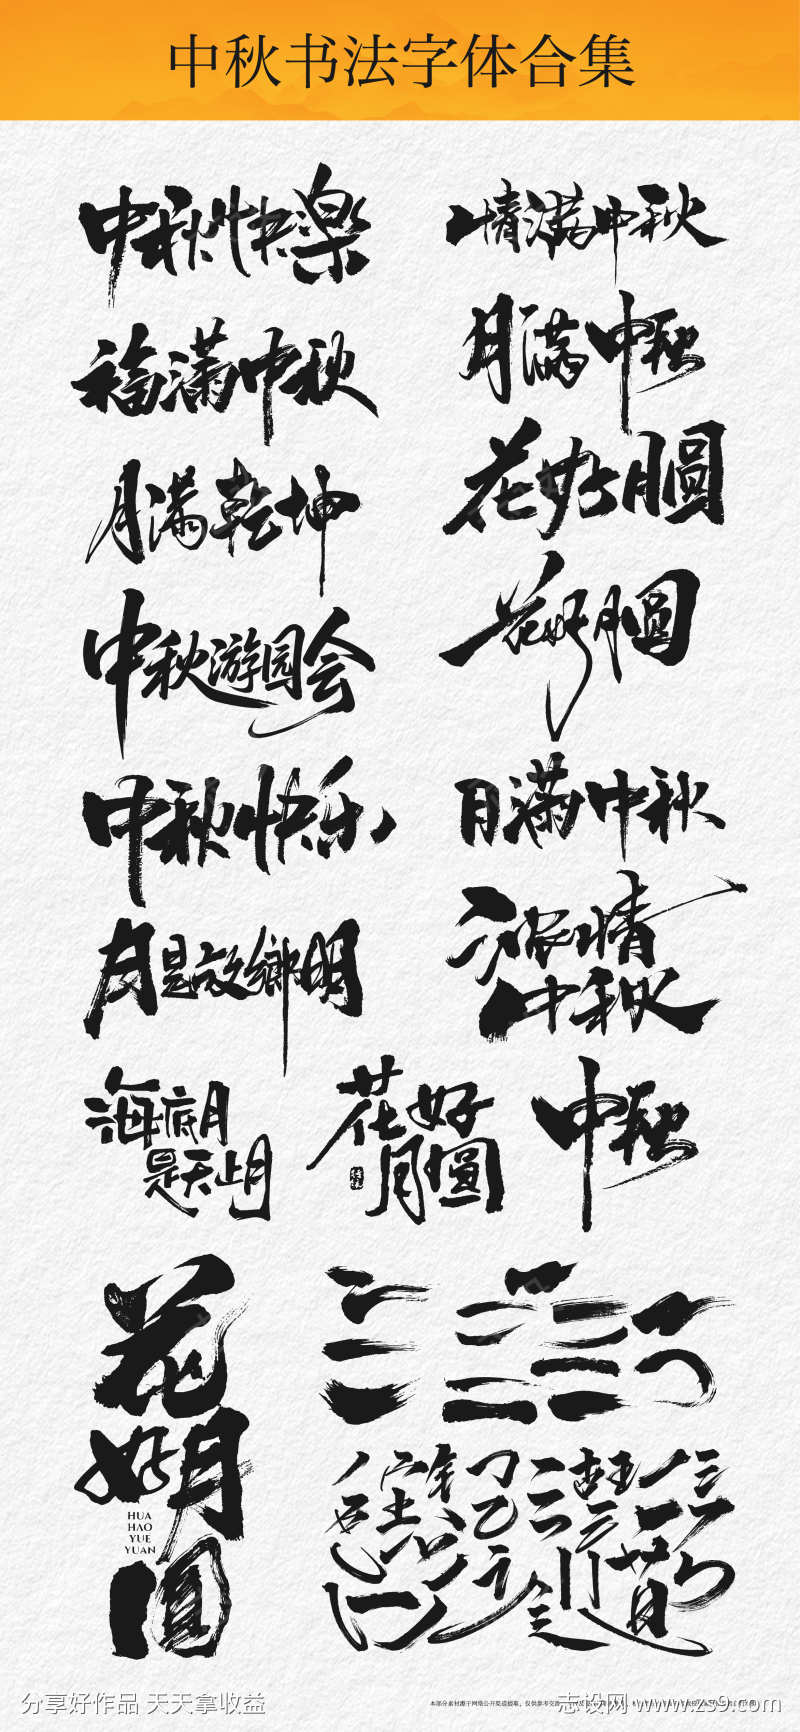 中秋书法字体合集
中秋快樂
情满中秋
福满中秋
月满中秋
月满乾坤
花好月圓
中秋游园会
花好月圆
中秋快乐
月满中秋
月是故鄉明
浓情
中秋
海底月
是天上月
花好
月圓
中秋
花
好月
HUA
HAO
YUE
YUAN
圓
分享好作品 天天拿收益
志设网 www.zs9.com